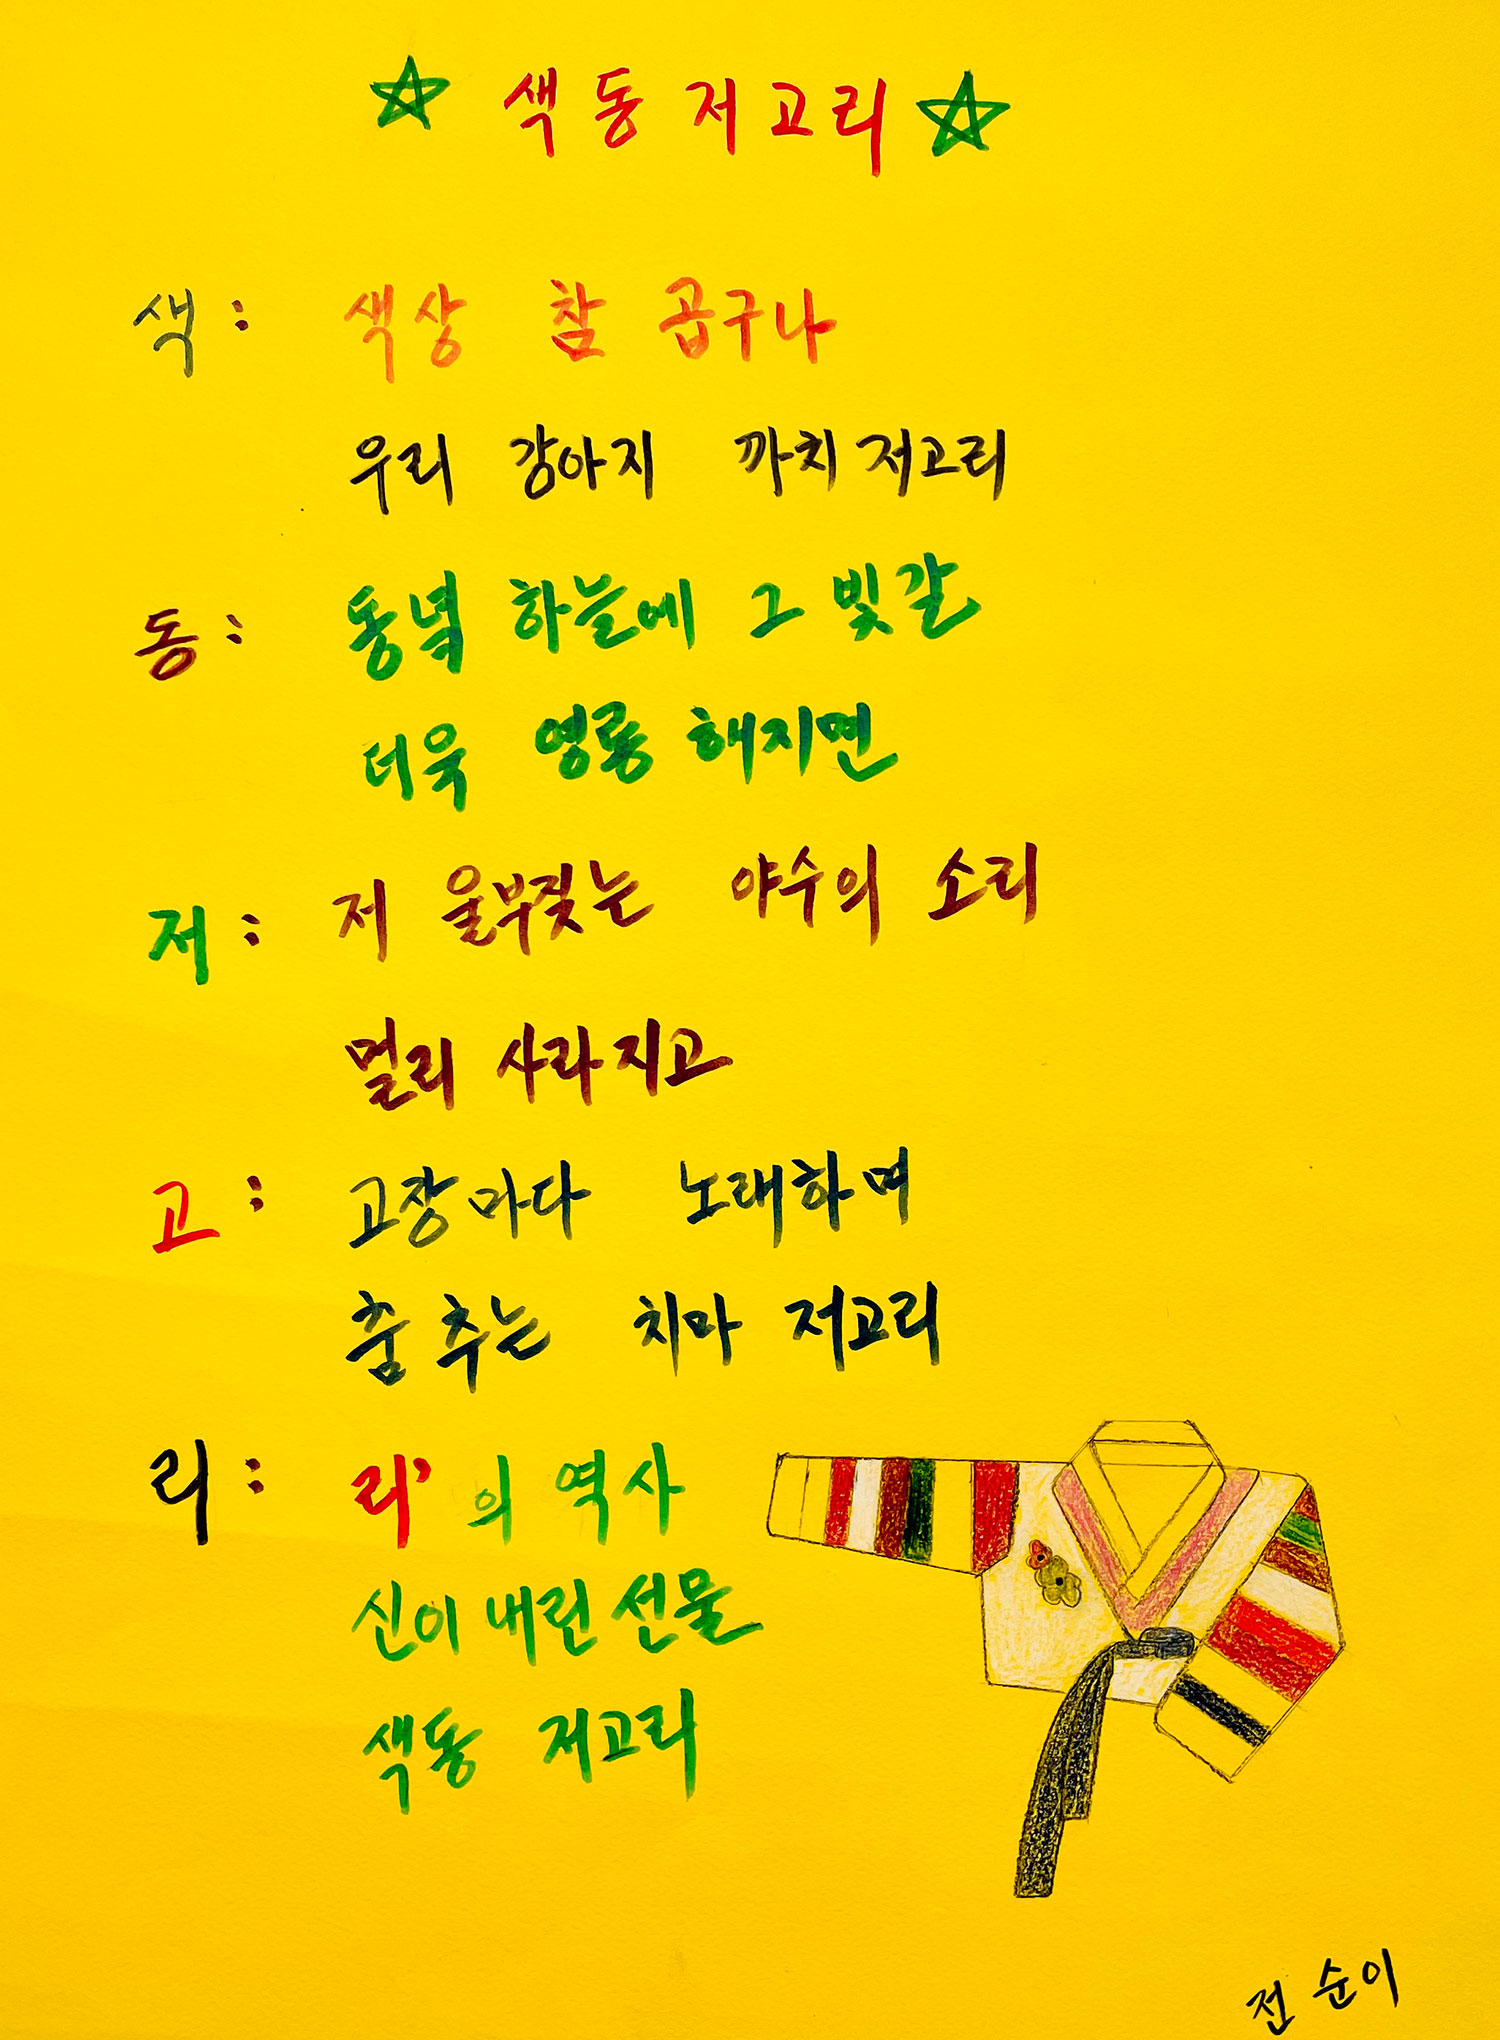 ☆ 색동저고리 ☆
색: 색상 참 곱구나
우리 강아지 까치저고리
동: 동녘 하늘에 그 빛갈
더욱 영롱 해지면
저: 저 울부짖는 야수의 소리
멀리 사라지고
고: 고장마다 노래하며
춤추는 치마 저고리
리: 리'의 역사
신이 내린 선물
색동 저고리
전순이